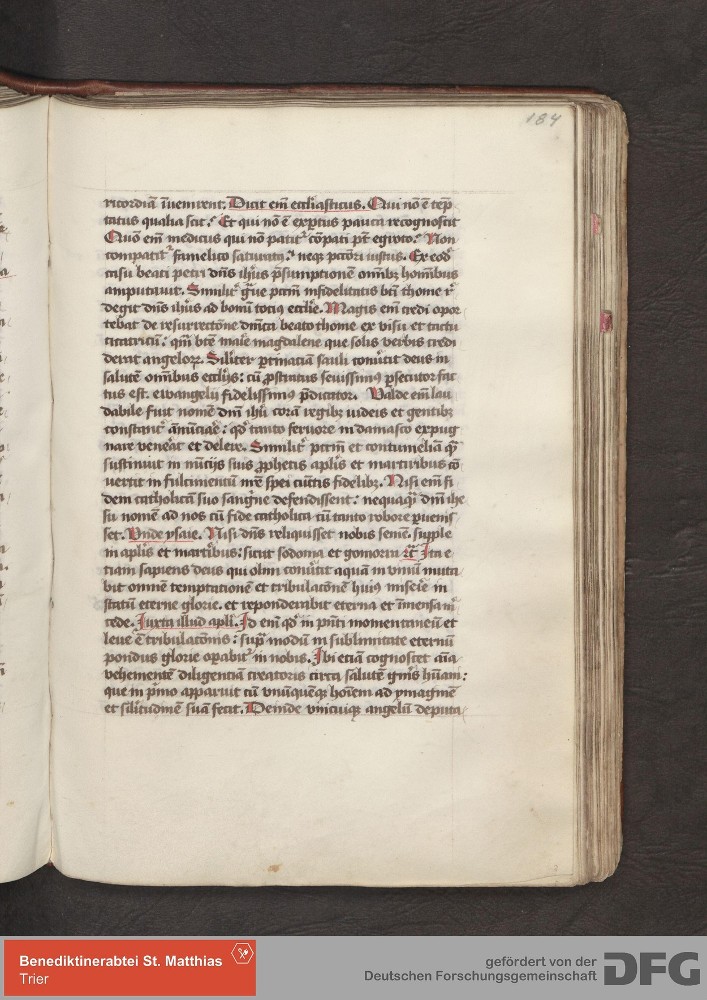 184
ricordiā īuenirent. Dicit em̄ ecclīasticus. Qui nō ē tēp
tatus qualia scit? Et qui nō ē exꝑtus pauca recognoscit
Quō em̄ medicus qui nō patit᷑ cōpati pt̄ egroto? Non
compatit᷑ famelico saturita᷑? neqꝫ pctōri iustus. Ex eod̄
casu beati petri dn̄s ihūs p̄sumptionē omībꝫ hoīnibus
amputauit. Similit᷑ gͣue pctm̄ infidelitatis bt̄i thome r̄
degit dn̄s ihūs ad bonū totiꝰ ecclīe. Magis em̄ credi opor
tebat de resurrectōne dn̄ica beato thome ex visu et tactu
cicatricū: qm̄ btē marīe magdalene que solis verbis credi
derat angeloꝝ. Silīter ꝑtinatiā sauli conūtit deus in
salutē omībus ecclījs: cū ꝓstratus seuissimꝰ ꝑsecutor fac
tus est. ewangelij fidelissimꝰ p̄dicator. Valde em̄ lau
dabile fuit nomē dn̄i ihū corā regibꝫ iudeis et gentibꝫ
constant᷑ ān̄ūciāe: qd̄ tanto feruore in damasco expug
nare veneāt et delere. Similit᷑ pctm̄ et contumeliā qͣ
sustinuit in nūcijs suis ꝓphetis aplīs et martiribus cō
uertit in fulcimentū nr̄e spei cūctis fidelibꝫ. Nisi em̄ fi
dem catholicā suo sangīne defendissent: nequaqͣ dn̄i ihe
su nomē ad nos cū fide catholica cū tanto robore ꝑuenis
set. Vnde ysaie. Nisi dn̄s reliquisset nobis semē. supple
in aplīs et martībus: sicut sodoma et gomorra ⁊c̄ Ita e
tiam sapiens deus qui olim conūtit aquā in vinū muta
bit omnē temptationē et tribulacōnē huiꝰ miseīe in
statū eterne glorie. et reponderabit eterna et īmensa m᷑
cede. Juxta illud aplī. Id em̄ qd̄ in pn̄ti momentaneū et
leue ē tribulacōnis: supͣ modū in sublimitate eternū
pondus glorie oꝑabit᷑ in nobis. Ibi etiā cognoscet aīa
vehementē diligentiā creatoris circa salutē gn̄is hūani:
que in pͥmo apparuit cū vnūquēqꝫ hoīem ad ymaginē
et silītudinē suā fecit. Deinde vnicuiqꝫ angelū deputa
Benediktinerabtei St. Matthias
Trier
gefördert von der
Deutschen Forschungsgemeinschaft
DFG